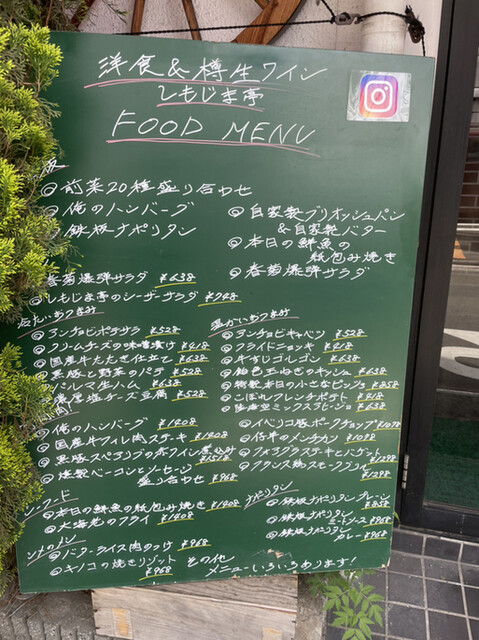 洋食&樽生ワイン
しもじま亭
FOOD MENU
◎前菜20種盛り合わせ
◎俺のハンバーグ
◎鉄板ナポリタン
◎自家製ブリオッシュパン
&自家製バター
◎本日の鮮魚の
紙包み焼き
◎春菊爆弾サラダ
春菊爆弾サラダ ¥638
◎しもじま亭のシーザーサラダ ¥748
冷たいおつまみ
◎アンチョビポテサラ ¥528
◎クリームチーズの味噌漬け ¥418
◎国産牛たたき仕立て ¥638
◎黒豚と野菜のパテ ¥528
パルマ生ハム ¥638
濃厚塩チーズ豆腐 ¥528
温かいおつまみ
◎アンチョビキャベツ ¥528
◎フライドニョッキ ¥418
◎牛すじゴルゴン ¥638
◎飴色玉ねぎのキッシュ ¥638
◎樹脂本日の小さなピッツァ ¥858
◎こぼれフレンチポテト ¥418
ミックスアヒージョ ¥638
◎俺のハンバーグ ¥1408
◎国産牛フィレ肉ステーキ ¥1408
◎黒豚スペアリブの赤ワイン煮込み
◎燻製ベーコンとソーセージ
盛り合わせ ¥968
◎イベリコ豚ポークチョップ ¥1078
◎仔牛のメンチカツ ¥1078
◎フォアグラステーキとバゲット ¥1298
◎フランス鴨スモークフライ ¥1298
シーフード
◎本日の鮮魚の紙包み焼き ¥1408
◎大海老のフライ ¥1408
ナポリタン
◎鉄板ナポリタン プレーン ¥858
◎鉄板ナポリタン
ミートソース ¥968
◎鉄板ナポリタン
カレー ¥968
◎バターライス肉のっけ ¥968
◎キノコの焼きリゾット ¥968
その他
メニューいろいろあります!